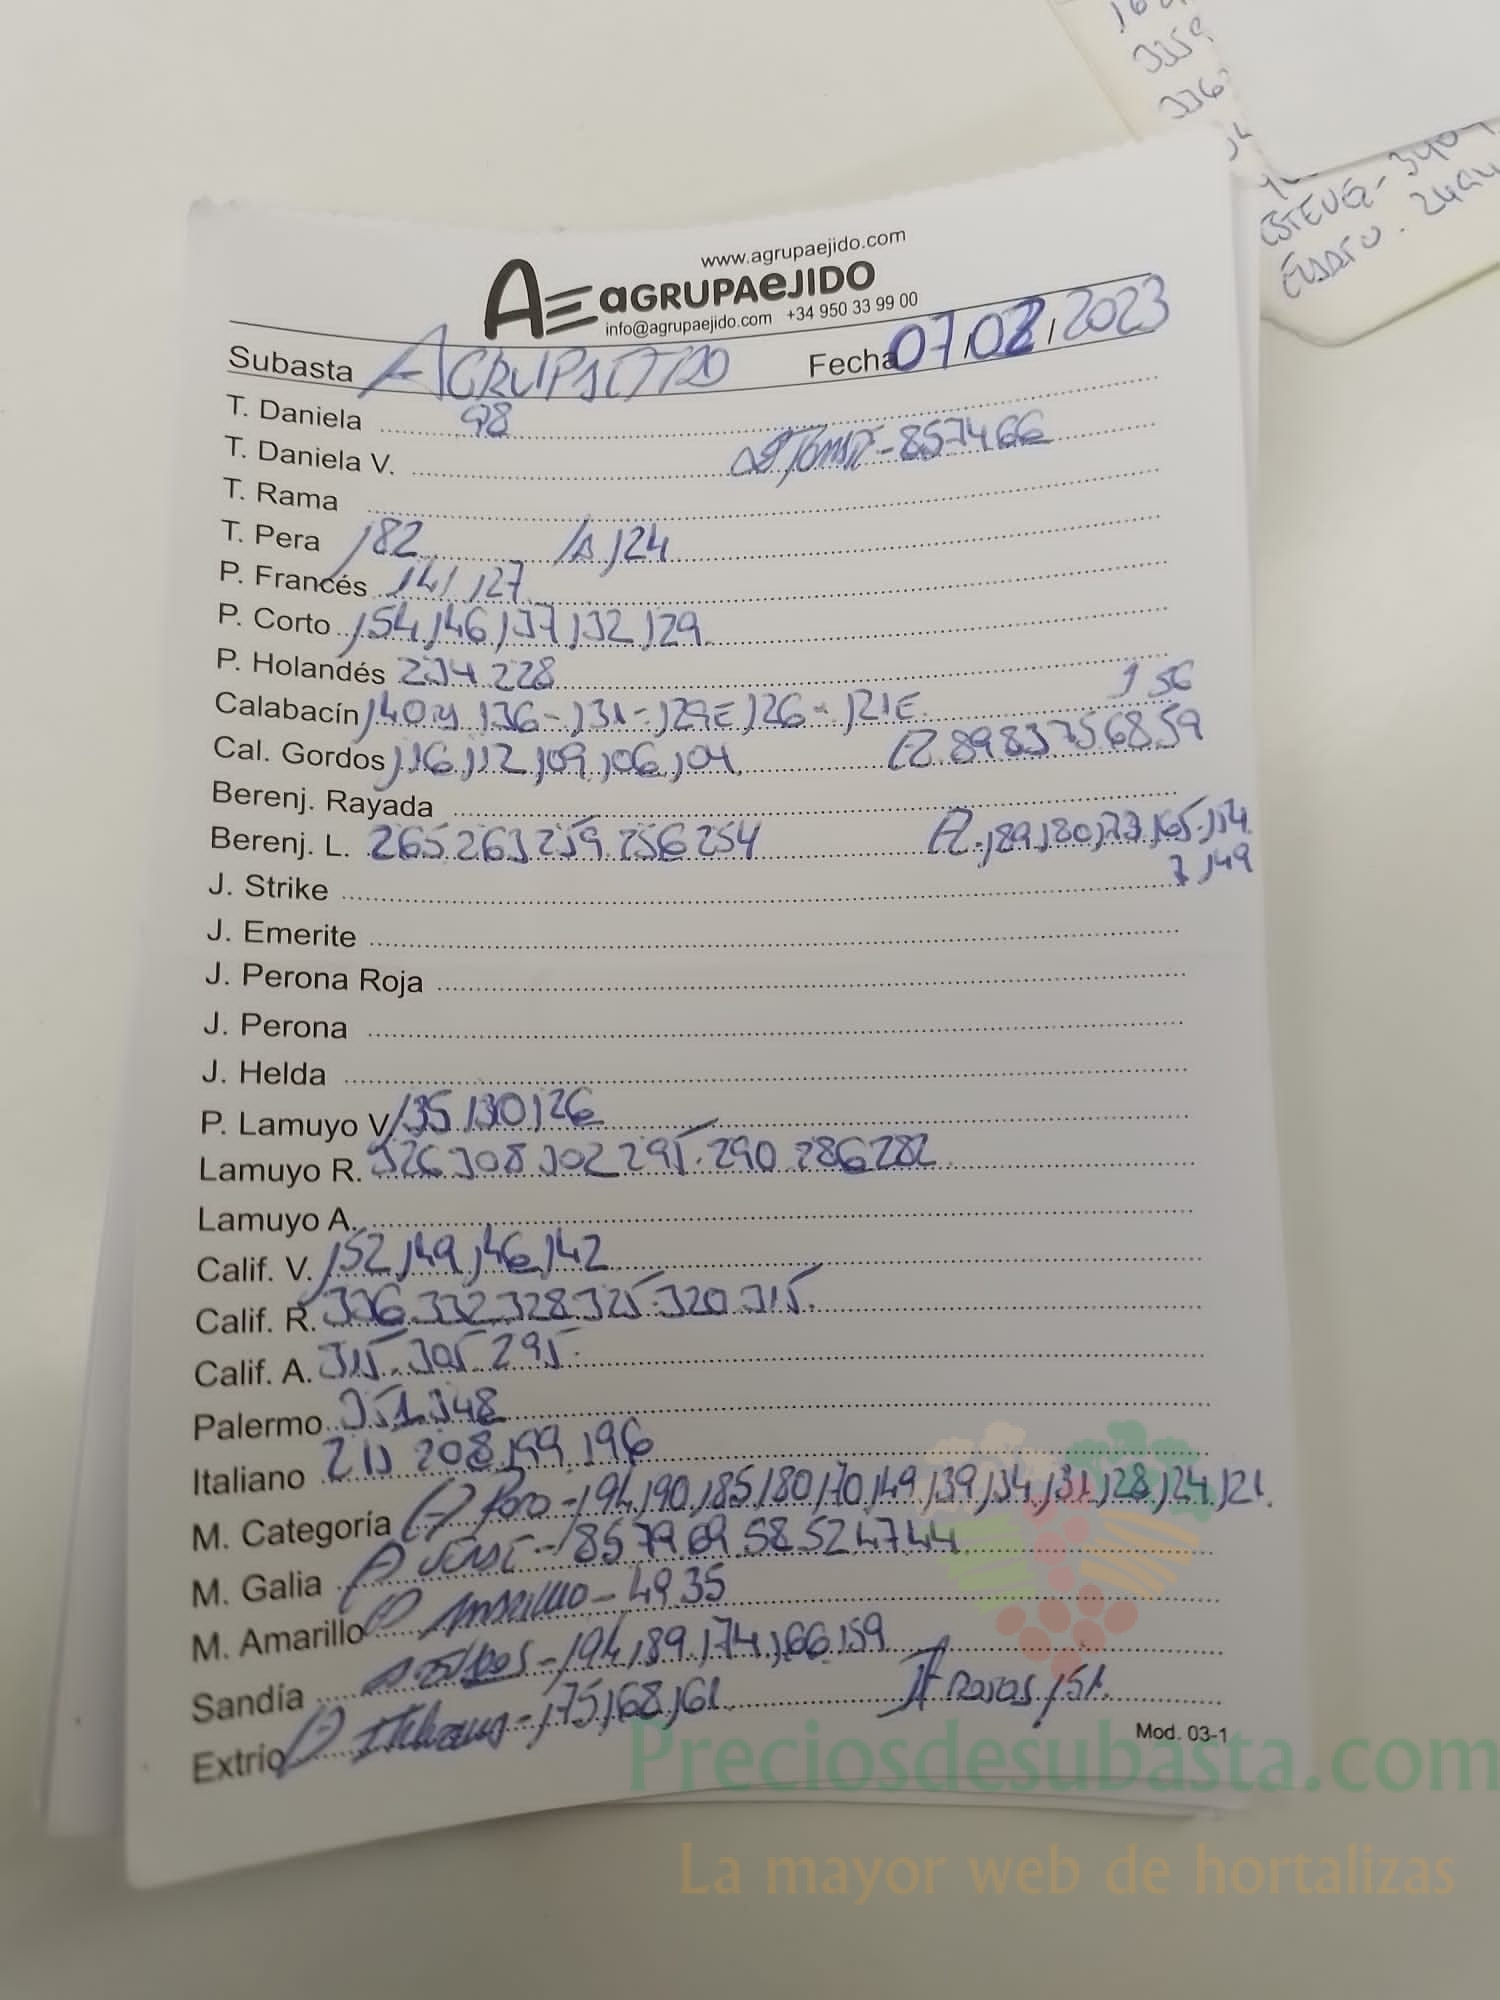 3259
336
ESTEVEZ-
www.agrupaejido.com
AE aGRUPAeJIDO
info@agrupaejido.com +34 950 33 99 00
Subasta AGRUPAEJIDO Fecha 07/02/2023
T. Daniela 98
T. Daniela V. - 857466
T. Rama
T. Pera 182 124
P. Francés 141 127
P. Corto 154 146 137 132 129
P. Holandés 234 228
1 56
Calabacín 140 136 - 131 - 129E 126 - 121E
Cal. Gordos 116 112 109 106 104 89 83 75 68 59
Berenj. Rayada
Berenj. L. 265 263 259 256 254 189 180 173 165 154
149
J. Strike
J. Emerite
J. Perona Roja
J. Perona
J. Helda
P. Lamuyo V 135 130 126
Lamuyo R. 326 308 302 295 290 286 282
Lamuyo A.
Calif. V. 152 149 146 142
Calif. R. 336 332 328 325 320 315
Calif. A. 315 305 295
Palermo 351 348
Italiano 213 208 199 196
M. Categoría Rojo - 194 190 185 180 170 149 139 134 131 128 124 121
M. Galia - 85 79 69 58 52 47 44
M. Amarillo Amarillo - 49 35
Sandía - 194 189 174 166 159
Extrio Italianos - 175 168 161 Rojos 151
Mod. 03-1
Preciosdesubasta.com
La mayor web de hortalizas